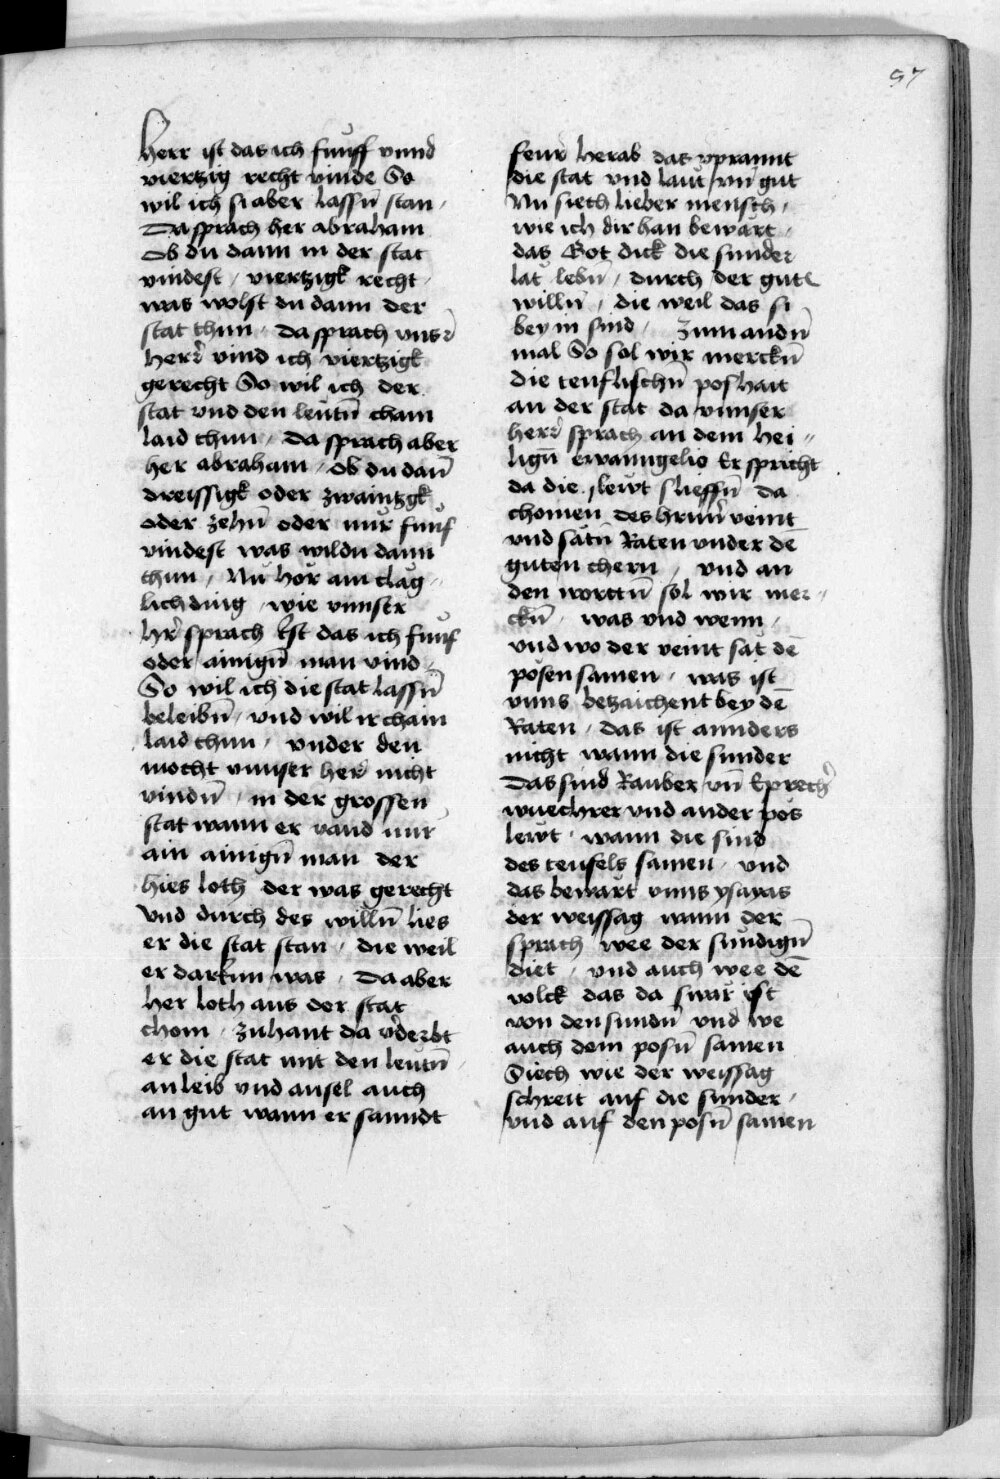 97
Herr ist das ich fünff vnnd
viertzig recht vinde So
wil ich si aber lassn̄ stan /
Da sprach her abraham
Ob du dann in der stat
vindest / viertzigk recht /
was wolst du dann der
stat thun / Da sprach vnser̄
Herr̄ vind ich viertzigk
gerecht So wil ich der
stat vnd den leutn̄ chain
laid thun / Da sprach aber
her abraham / Ob du dan̄
dreissigk oder zwaintzgk
oder zehn̄ oder nur fünf
vindest was wildu dann
thun / Nu hör ain clag //
lich ding / wie vnnser
Hr̄ sprach Ist das ich fünf
oder ainign̄ man vind /
So wil ich die stat lassn̄
beleibn̄ / vnd wil ir chain
laid thun / vnder den
mocht vnnser her̄ nicht
vindn̄ / in der grossen
stat wann er vand nur
ain ainign̄ man der
hies loth der was gerecht
vnd durch des willn̄ lies
er die stat stan / die weil
er darkinn was / Da aber
her loth aus der stat
chom / zuhant da v̄derbt
er die stat mit den leutn̄ /
an leib vnd an sel auch
an gut wann er sanndt
feur herab das vprannt
die stat vnd laut vn̄ gut
Nu sieth lieber mensch /
wie ich dir han bewart /
das Got dick die sunder
lat lebn̄ / durch der gute
willn̄ / die weil das si
bey in sind / Zum andn̄
mal So sol wir merckn̄
die teuflischn̄ poshait
an der stat da vnnser
herr̄ sprach an dem hei //
lign̄ ewanngelio Er spricht
da die lewt slieffn̄ da
chomen des hrnn̄ veint
vnd sätn̄ Raten vnder dē
guten chern / vnd an
den worttn̄ sol wir mer //
ckn̄ / was vnd wenn /
vnd wo der veint sät dē
pösen samen / was ist
vnns betzaichent bey dē
Raten / das ist annders
nicht wann die sunder
Das sind Rauber vn̄ Eprech̄
wuechrer vnd ander pös
lewt / wann die sind
des teufels samen / vnd
das bewart vnns ysayas
der weissag wann der
sprach wee der sundign̄
diet / vnd auch wee dē
volck das da swar ist
von den sundn̄ vnd we
auch dem posn̄ samen
Siech wie der weissag
schreit auf die sunder /
vnd auf den posn̄ samen